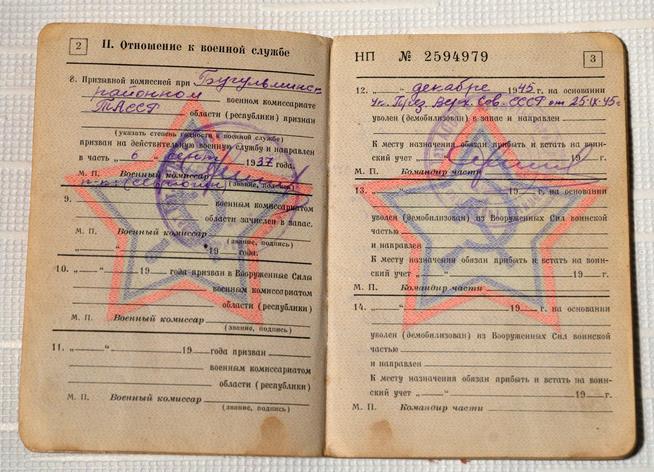 2
II. Отношение к военной службе
8. Призывной комиссией при Бугульминск
районном военном комиссариате
ТАССР области (республики) признан
(указать степень годности к военной службе)
призван на действительную военную службу и направлен
в часть „ 6 “ сент 1937 года.
М. П. Военный комиссар
(звание, подпись)
9. военным комиссариатом
области зачислен в запас.
М. П. Военный комиссар
(звание, подпись)
„ “ 19 года.
10. „ “ 19 года призван в Вооруженные Силы
военным комиссариатом
области (республики)
М. П. Военный комиссар
(звание, подпись)
11. „ “ 19 года призван
военным комиссариатом
области (республики)
М. П. Военный комиссар
(звание, подпись)
НП № 2594979
3
12. „ “ декабре 1945 г. на основании
Ук. През. Верх. Сов. СССР от 25.IX.45г
уволен (демобилизован) в запас и направлен
К месту назначения обязан прибыть и встать на воин-
ский учет „ “ 19 г.
М. П. Командир части
13. „ “ 19 г. на основании
уволен (демобилизован) из Вооруженных Сил воинской
частью
и направлен
К месту назначения обязан прибыть и встать на воин-
ский учет „ “ 19 г.
М. П. Командир части
14. „ “ 19 г. на основании
уволен (демобилизован) из Вооруженных Сил воинской
частью
и направлен
К месту назначения обязан прибыть и встать на воин-
ский учет „ “ 19 г.
М. П. Командир части